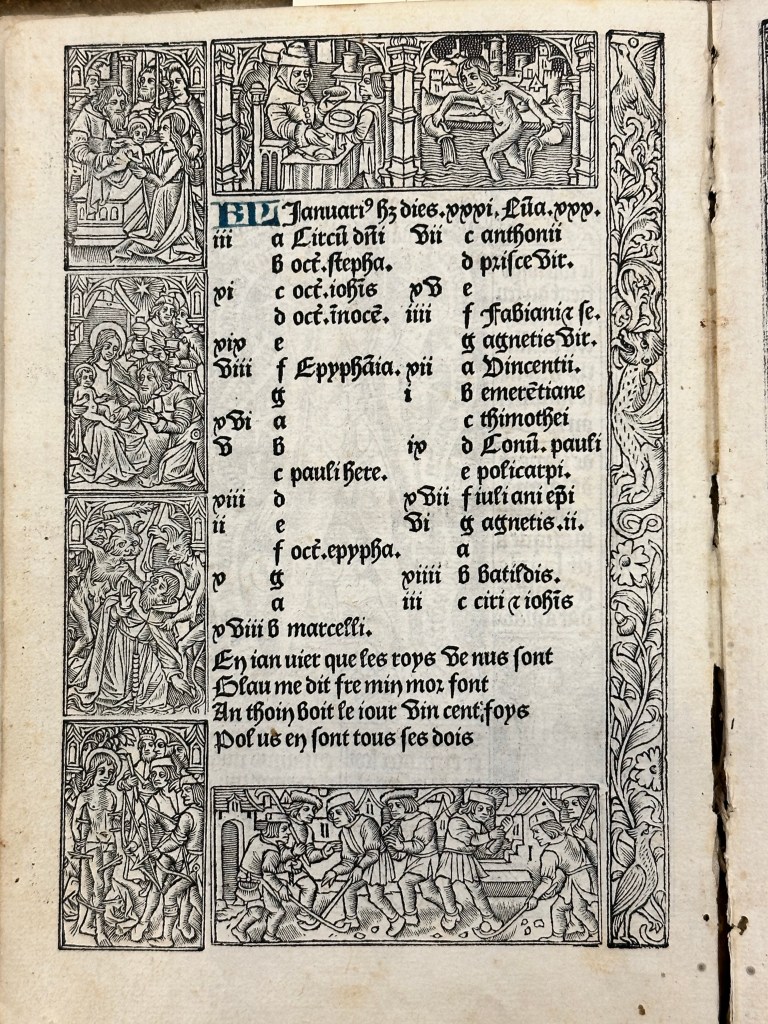 KL Januari⁹ hꝫ dies. xxxi. Lūa. xxx.
iii a Circū dn̄i
b oct̄. stepha.
xi c oct̄. ioh̄is
d oct̄. īnocē.
xix e
viii f Epyphāia.
g
xvi a
v b
c pauli here.
xiii d
ii e
f oct̄. epypha.
x g
a
xviii b marcelli.
vii c anthonii
d prisce vir.
xv e
iiii f Fabiani ⁊ se.
g agnetis vir.
xii a Vincentii.
i b emerētiane
c thimothei
ix d Conū. pauli
e policarpi.
xvii f iuliani ep̄i
vi g agnetis. ii.
a
xiiii b batildis.
iii c ciri ⁊ ioh̄is
En ian uier que les roys ve nus sont
Glau me dit fre min mor font
An thoin boit le iour vin cent foys
Pol us en sont tous ses dois